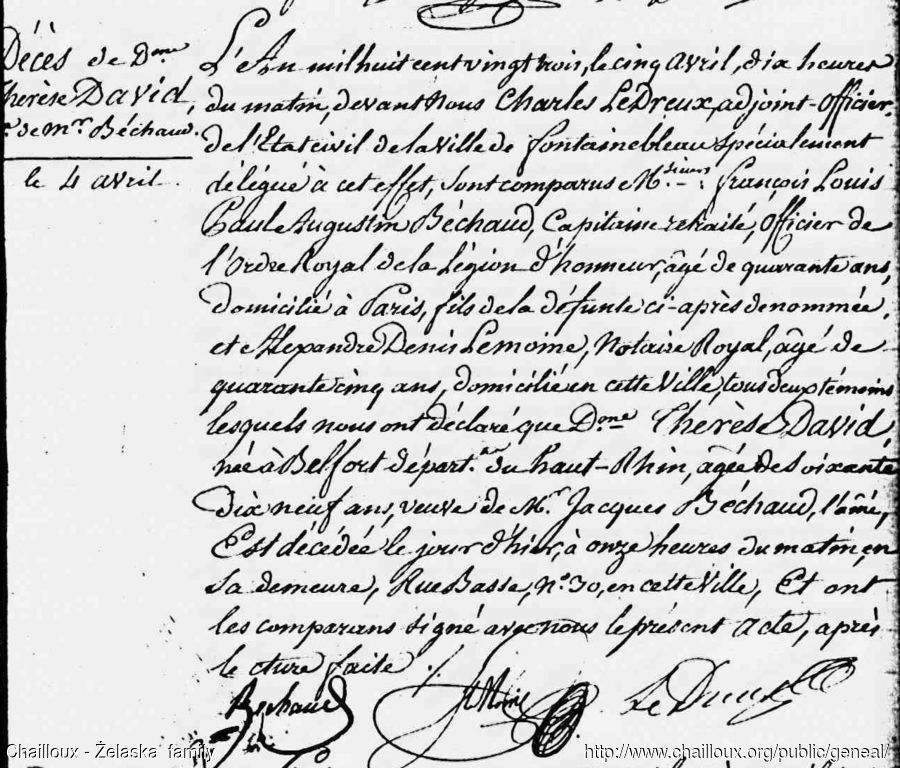 Décès de Dme
Therèse David,
Ve de Mr Béchaud.
le 4 avril.
L'An mil huit cent vingt trois, le cinq avril, dix heures
du matin, devant Nous Charles LeDreux, adjoint-officier
de l'Etat civil de la Ville de fontainebleau spécialement
délégué à cet effet, sont comparus Msieurs françois Louis
Paul Augustin Béchaud, Capitaine retraité, officier de
l'ordre Royal de la Légion d'honneur, âgé de quarante ans,
domicilié à Paris, fils de la défunte ci-après denommée,
et Alexandre Denis Lemoine, Notaire Royal, âgé de
quarante cinq ans, domicilié en cette Ville, tous deux témoins
lesquels nous ont déclaré que Dme Therèse David,
née à Belfort départ. du haut-Rhin, âgée de soixante
dix neuf ans, veuve de Mr Jacques Béchaud, l'aîné,
Est décédée le jour d'hier, à onze heures du matin, en
sa demeure, Rue Basse, No 30, en cette Ville, Et ont
les comparans signé avec nous le présent acte, après
lecture faite ./.
Bechaud
LeDreux
Chailloux - Żelaska family
http://www.chailloux.org/public/geneal/